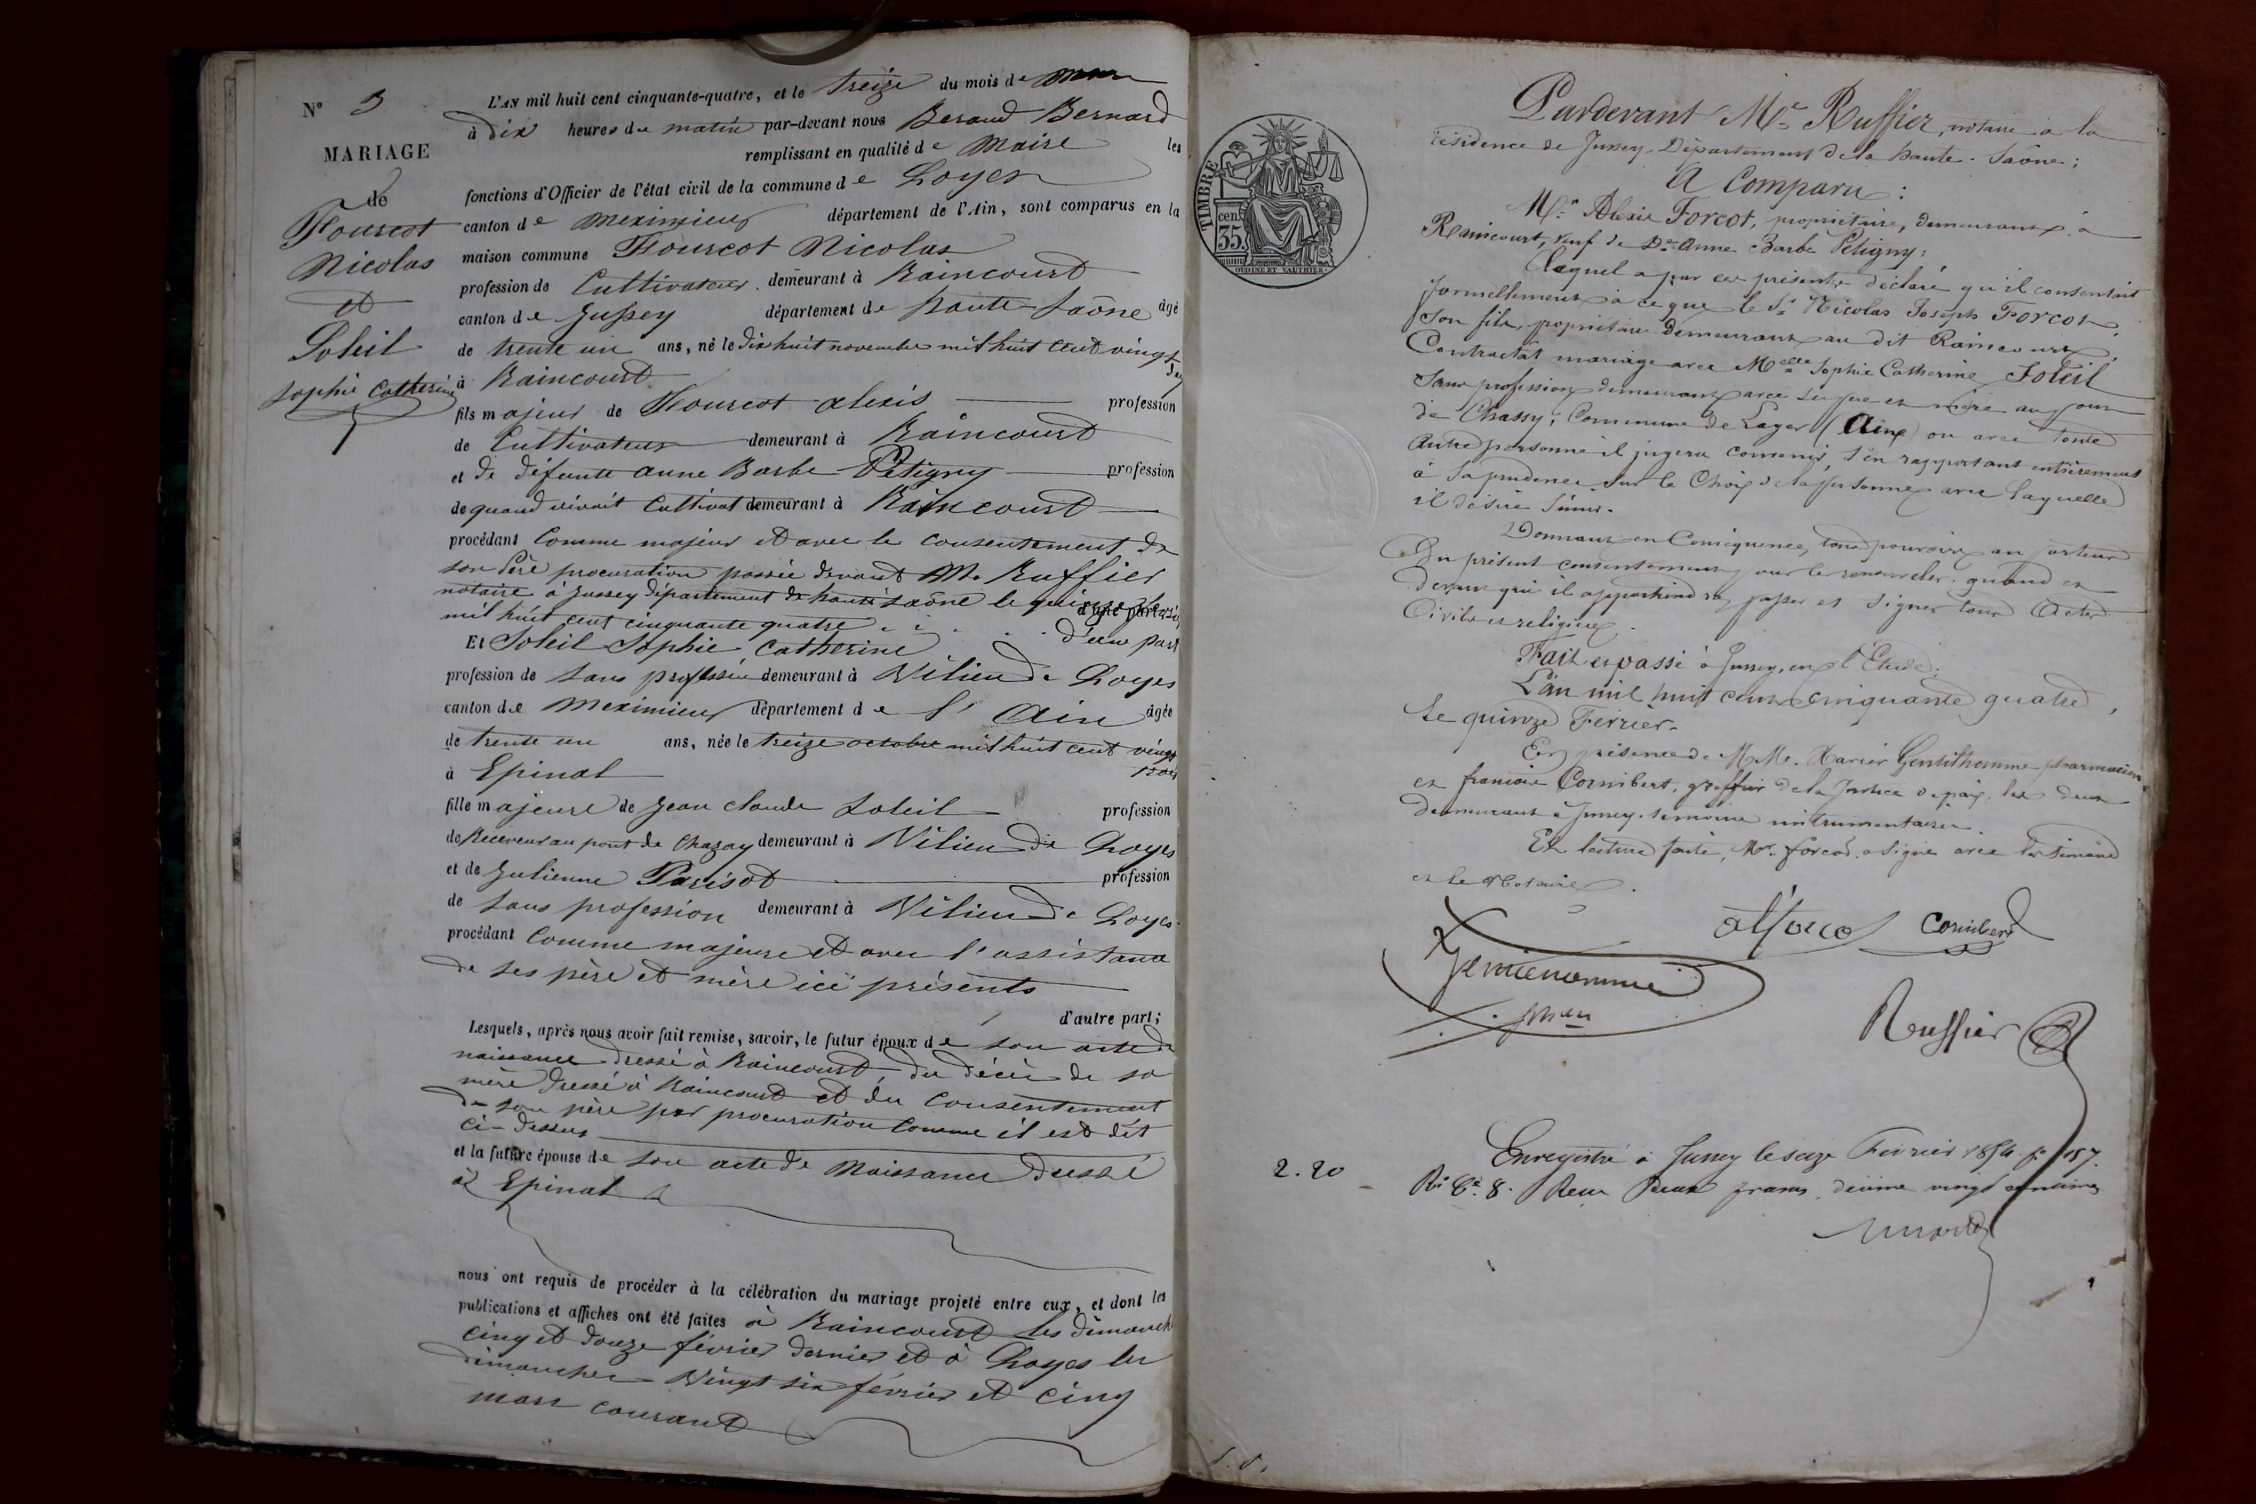 N° 3
MARIAGE
de
Fourcot
Nicolas
et
Soleil
Sophie Catherine
L'AN mil huit cent cinquante-quatre, et le treize du mois de mars
à dix heures du matin par-devant nous Beraud Bernard
remplissant en qualité de Maire les
fonctions d'Officier de l'état civil de la commune de Loyes
canton de Meximieux département de l'Ain, sont comparus en la
maison commune Fourcot Nicolas
profession de Cultivateur demeurant à Raincourt
canton de Jussey département de haute Saône âgé
de trente un ans, né le dix huit novembre mil huit cent vingt
à Raincourt
fils majeur de Fourcot alexis profession
de Cultivateur demeurant à Raincourt
et de défunte anne Barbe Petigny profession
de quand vivait Cultivat demeurant à Raincourt
procédant Comme majeur et avec le consentement de
son Père procuration passée devant M. Ruffier
notaire à Jussey département de haute Saône le quinze
mil huit cent cinquante quatre d'une part
Et Soleil Sophie Catherine
profession de sans profession demeurant à Vilieu de Loyes
canton de Meximieux département de l'Ain âgée
de trente un ans, née le treize octobre mil huit cent vingt
trois
à Epinal
fille majeure de Jean claude Soleil profession
de Receveur au pont de Chazay demeurant à Vilieu de Loyes
et de Julienne Parisot profession
de sans profession demeurant à Vilieu de Loyes
procédant Comme majeure et avec l'assistance
de ses père et mère ici présents
d'autre part;
Lesquels, après nous avoir fait remise, savoir, le futur époux de son acte de
naissance dressé à Raincourt, du décès de sa
mère dressé à Raincourt et du consentement
de son père par procuration comme il est dit
ci-dessus
et la future épouse de son acte de Naissance dressé
à Epinal
nous ont requis de procéder à la célébration du mariage projeté entre eux, et dont les
publications et affiches ont été faites à Raincourt les dimanches
cinq et douze février dernier et à Loyes les
dimanches vingt six février et cinq
mars courant
TIMBRE
35 cen
OUDINE ET VAUTHIER
Pardevant Me Ruffier, notaire à la
résidence de Jussey, Département de la haute-Saône;
A Comparu:
Mr Alexis Forcot, propriétaire, demeurant à
Raincourt, veuf de De Anne Barbe Petigny;
Lequel a par ces présentes déclaré qu'il consentait
formellement à ce que le Sr Nicolas Joseph Forcot
son fils, propriétaire demeurant au dit Raincourt,
Contractât mariage avec Melle Sophie Catherine Soleil
sans profession demeurant avec ses père et mère au pont
de Chassy, Commune de Lager (Ain) ou avec toute
autre personne il jugera convenir, s'en rapportant entièrement
à sa prudence sur le Choix de la personne avec laquelle
il désire s'unir.
Donnant en Conséquence, tous pouvoirs au porteur
Du présent consentement, pour le renouveler quand et
devant qui il appartiendra, passer et signer tous Actes
Civils et religieux.
Fait et passé à Jussey, en l'Etude,
L'an mil huit cent cinquante quatre,
Le quinze Février.
En présence de MM. Xavier Gentilhomme pharmacien
et françois Cornibert, greffier de la Justice de paix, les deux
demeurant à Jussey, témoins instrumentaires.
Et lecture faite, Mr forcot a signé avec les témoins
et le Notaire.
Cornibert
Ruffier
2.20
Enregistré à Jussey le seize Février 1854 fo 157.
Ro Ce 8. Reçu Deux francs, décime vingt centimes